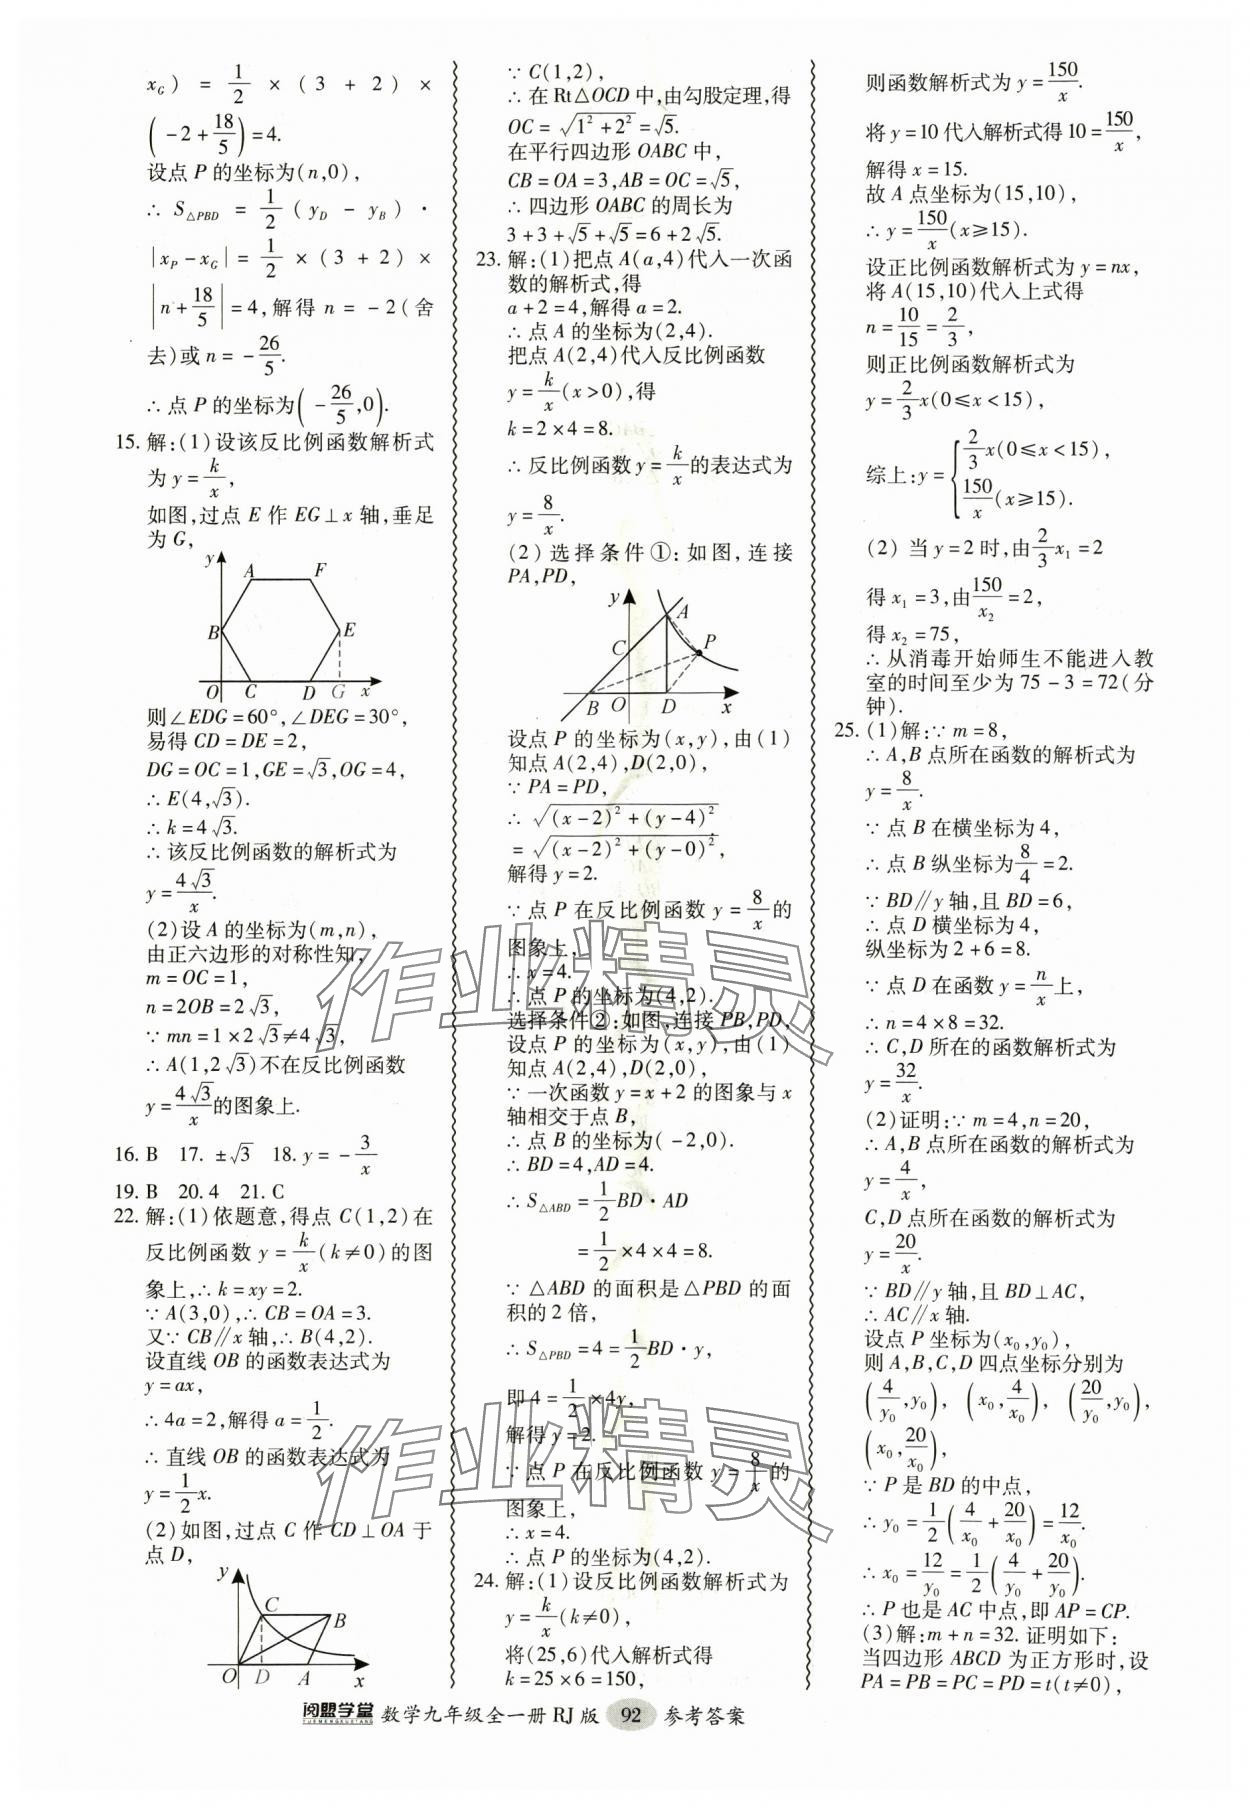 x_G) = 1/2 × (3 + 2) ×
(-2 + 18/5) = 4.
设点 P 的坐标为(n,0),
∴ S△PBD = 1/2 (y_D - y_B)·
|x_P - x_G| = 1/2 × (3 + 2) ×
|n + 18/5| = 4,解得 n = -2(舍
去)或 n = -26/5.
∴ 点 P 的坐标为(-26/5,0).
15. 解:(1)设该反比例函数解析式
为 y = k/x,
如图,过点 E 作 EG⊥x 轴,垂足
为 G,
y
A F
B E
O C D G x
则∠EDG = 60°,∠DEG = 30°,
易得 CD = DE = 2,
DG = OC = 1,GE = √3,OG = 4,
∴ E(4,√3).
∴ k = 4√3.
∴ 该反比例函数的解析式为
y = 4√3/x.
(2)设 A 的坐标为(m,n),
由正六边形的对称性知,
m = OC = 1,
n = 2OB = 2√3,
∵ mn = 1 × 2√3 ≠ 4√3,
∴ A(1,2√3)不在反比例函数
y = 4√3/x 的图象上.
16. B 17. ±√3 18. y = -3/x
19. B 20. 4 21. C
22. 解:(1)依题意,得点 C(1,2)在
反比例函数 y = k/x (k≠0)的图
象上,∴ k = xy = 2.
∵ A(3,0),∴ CB = OA = 3.
又∵ CB∥x 轴,∴ B(4,2).
设直线 OB 的函数表达式为
y = ax,
∴ 4a = 2,解得 a = 1/2.
∴ 直线 OB 的函数表达式为
y = 1/2 x.
(2)如图,过点 C 作 CD⊥OA 于
点 D,
y
C B
O D A x
∵ C(1,2),
∴ 在 Rt△OCD 中,由勾股定理,得
OC = √(1² + 2²) = √5.
在平行四边形 OABC 中,
CB = OA = 3,AB = OC = √5,
∴ 四边形 OABC 的周长为
3 + 3 + √5 + √5 = 6 + 2√5.
23. 解:(1)把点 A(a,4)代入一次函
数的解析式,得
a + 2 = 4,解得 a = 2.
∴ 点 A 的坐标为(2,4).
把点 A(2,4)代入反比例函数
y = k/x (x > 0),得
k = 2 × 4 = 8.
∴ 反比例函数 y = k/x 的表达式为
y = 8/x.
(2) 选择条件①:如图,连接
PA,PD,
y
A
C P
B O D x
设点 P 的坐标为(x,y),由(1)
知点 A(2,4),D(2,0),
∵ PA = PD,
∴ √((x - 2)² + (y - 4)²)
= √((x - 2)² + (y - 0)²),
解得 y = 2.
∵ 点 P 在反比例函数 y = 8/x 的
图象上,
∴ x = 4.
∴ 点 P 的坐标为(4,2).
选择条件②:如图,连接 PB,PD,
设点 P 的坐标为(x,y),由(1)
知点 A(2,4),D(2,0),
∵ 一次函数 y = x + 2 的图象与 x
轴相交于点 B,
∴ 点 B 的坐标为(-2,0).
∴ BD = 4,AD = 4.
∴ S△ABD = 1/2 BD·AD
= 1/2 × 4 × 4 = 8.
∵ △ABD 的面积是△PBD 的面
积的 2 倍,
∴ S△PBD = 4 = 1/2 BD·y,
即 4 = 1/2 × 4y,
解得 y = 2.
∵ 点 P 在反比例函数 y = 8/x 的
图象上,
∴ x = 4.
∴ 点 P 的坐标为(4,2).
24. 解:(1)设反比例函数解析式为
y = k/x (k≠0),
将(25,6)代入解析式得
k = 25 × 6 = 150,
则函数解析式为 y = 150/x.
将 y = 10 代入解析式得 10 = 150/x,
解得 x = 15.
故 A 点坐标为(15,10),
∴ y = 150/x (x≥15).
设正比例函数解析式为 y = nx,
将 A(15,10)代入上式得
n = 10/15 = 2/3,
则正比例函数解析式为
y = 2/3 x(0≤x < 15),
综上:y = { 2/3 x(0≤x < 15),
150/x (x≥15).
(2) 当 y = 2 时,由 2/3 x₁ = 2
得 x₁ = 3,由 150/x₂ = 2,
得 x₂ = 75,
∴ 从消毒开始师生不能进入教
室的时间至少为 75 - 3 = 72(分
钟).
25. (1)解:∵ m = 8,
∴ A,B 点所在函数的解析式为
y = 8/x.
∵ 点 B 在横坐标为 4,
∴ 点 B 纵坐标为 8/4 = 2.
∵ BD∥y 轴,且 BD = 6,
∴ 点 D 横坐标为 4,
纵坐标为 2 + 6 = 8.
∵ 点 D 在函数 y = n/x 上,
∴ n = 4 × 8 = 32.
∴ C,D 所在的函数解析式为
y = 32/x.
(2)证明:∵ m = 4,n = 20,
∴ A,B 点所在函数的解析式为
y = 4/x,
C,D 点所在函数的解析式为
y = 20/x.
∵ BD∥y 轴,且 BD⊥AC,
∴ AC∥x 轴.
设点 P 坐标为(x₀,y₀),
则 A,B,C,D 四点坐标分别为
(4/y₀,y₀),(x₀,4/x₀),(20/y₀,y₀),
(x₀,20/x₀),
∵ P 是 BD 的中点,
∴ y₀ = 1/2 (4/x₀ + 20/x₀) = 12/x₀.
∴ x₀ = 12/y₀ = 1/2 (4/y₀ + 20/y₀).
∴ P 也是 AC 中点,即 AP = CP.
(3)解:m + n = 32. 证明如下:
当四边形 ABCD 为正方形时,设
PA = PB = PC = PD = t(t≠0),
作业精灵
作业精灵
阅盟学堂 数学九年级全一册 RJ 版 92 参考答案